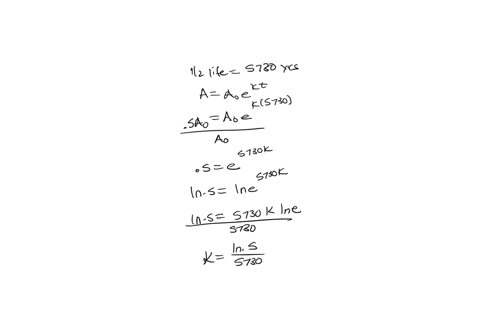 1/2 life = 5730 yrs
A = A₀e^kt
.5A₀ = A₀e^k(5730)
A₀
.5 = e^5730k
ln.5 = lne^5730k
ln.5 = 5730 k lne
5730
k = ln.5/5730